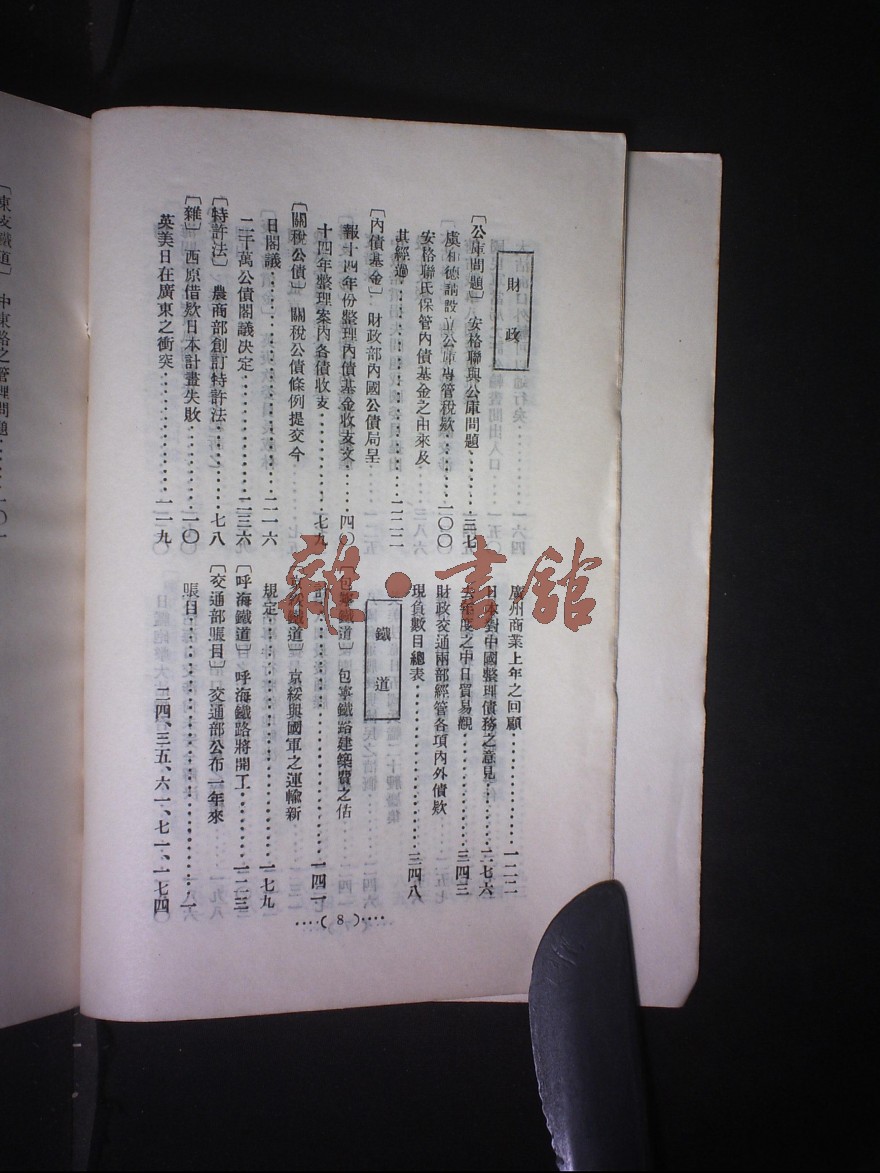 財政
〔公庫問題〕 安格聯與公庫問題………三七
虞和德請設立公庫專管稅款……一〇〇
安格聯氏保管內債基金之由來及
其經過…………………一二二
〔內債基金〕 財政部內國公債局呈
報十四年份整理內債基金收支文……四〇
十四年整理案內各債收支…………七九
〔關稅公債〕 關稅公債條例提交今
日閣議…………………二一六
二千萬公債閣議決定…………二三六
〔特許法〕 農商部創訂特許法……七八
〔雜〕 西原借款日本計畫失敗……一〇
英美日在廣東之衝突…………一一九
廣州商業上年之回顧…………一二二
日本對中國整理債務之意見……二七六
去年度之中日貿易觀…………三四三
財政交通兩部經管各項內外債款
現負數目總表…………三四八
鐵道
〔包寧鐵道〕 包寧鐵路建築費之估
計…………………一四一
〔京綏鐵道〕 京綏與國軍之運輸新
規定…………………一七九
〔呼海鐵道〕 呼海鐵路將開工……一二三
〔交通部賬目〕 交通部公布一年來
賬目…………………八一
二四、三五、六一、七一、一七四
‥‥( 8 )‥‥
〔東支鐵道〕 中東路之管理問題……一〇一
雜·書館